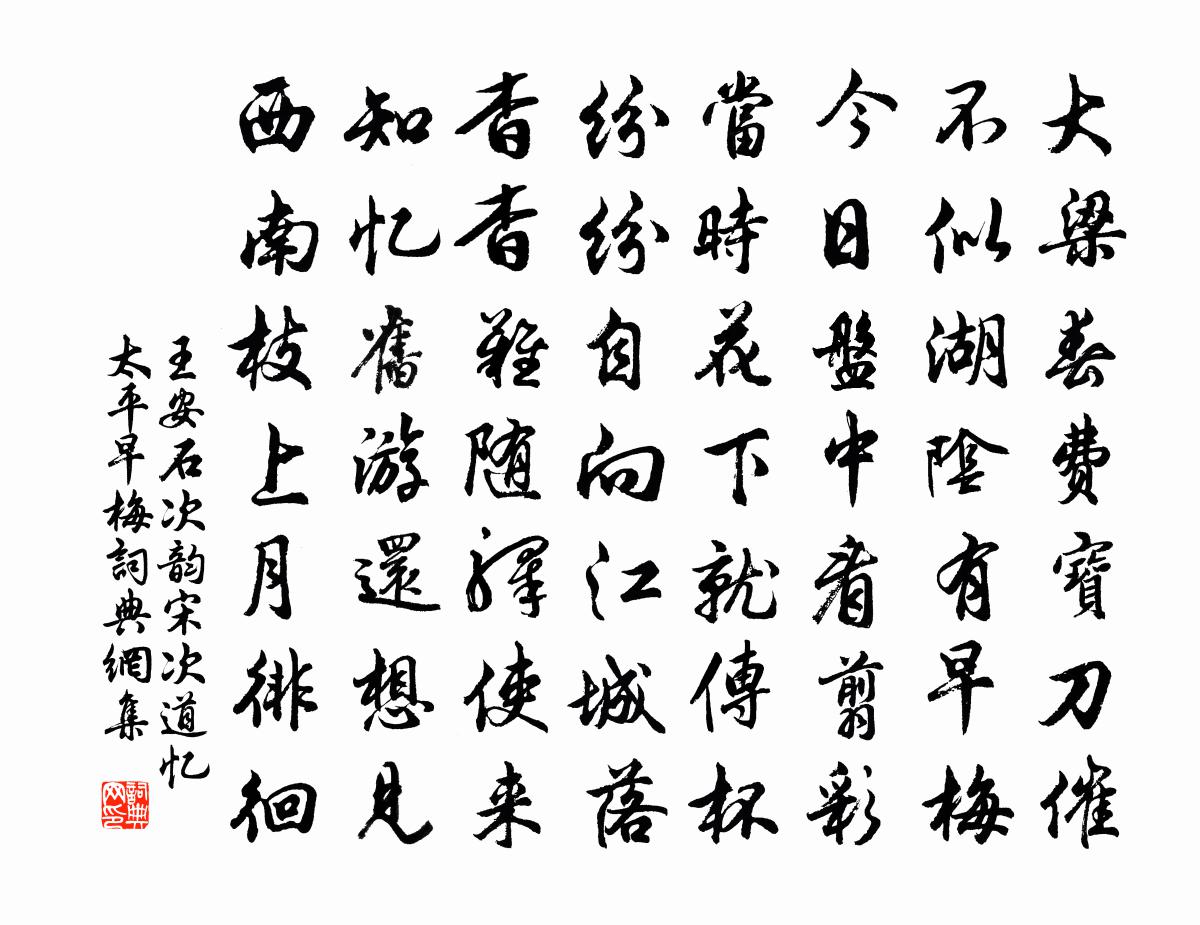 大梁春費寶刀催
不似湖陰有早梅
今日盤中看翦彩
當時花下就傳杯
紛紛自向江城落
杳杳難随驛使来
知忆舊游還想見
西南枝上月徘徊
王安石次韵宋次道忆
太平早梅詞典網集
詞典网印